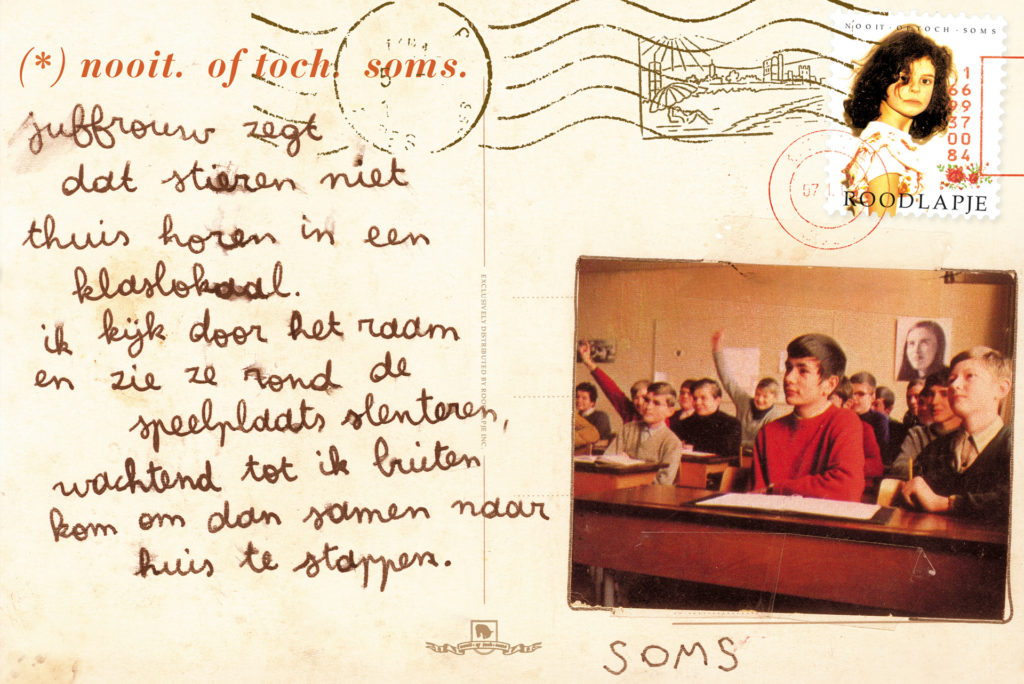 (*) nooit. of toch. soms.
juffrouw zegt
dat stieren niet
thuis horen in een
klaslokaal.
ik kijk door het raam
en zie ze rond de
speelplaats slenteren,
wachtend tot ik buiten
kom om dan samen naar
huis te stappen.
EXCLUSIVELY DISTRIBUTED BY ROODLAPJE INC.
nooit · of toch · soms
NOOIT · OF TOCH · SOMS
01
66
99
37
00
84
ROODLAPJE
07
SOMS